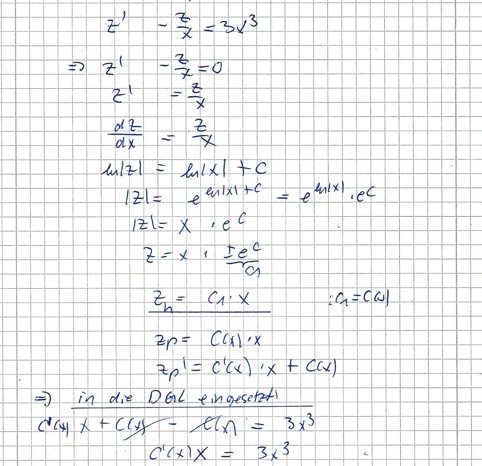 z' - z/x = 3x³
=> z' - z/x = 0
z' = z/x
dz/dx = z/x
ln|z| = ln|x| + C
|z| = e^(ln|x| + C) = e^(ln|x|) · e^C
|z| = x · e^C
z = x · ±e^C
C₁
z_h = C₁ · x ; C₁ = C(x)
z_p = C(x) · x
z_p' = C'(x) · x + C(x)
=> in die DGL eingesetzt:
C'(x) x + C(x) - C(x) = 3x³
C'(x) x = 3x³